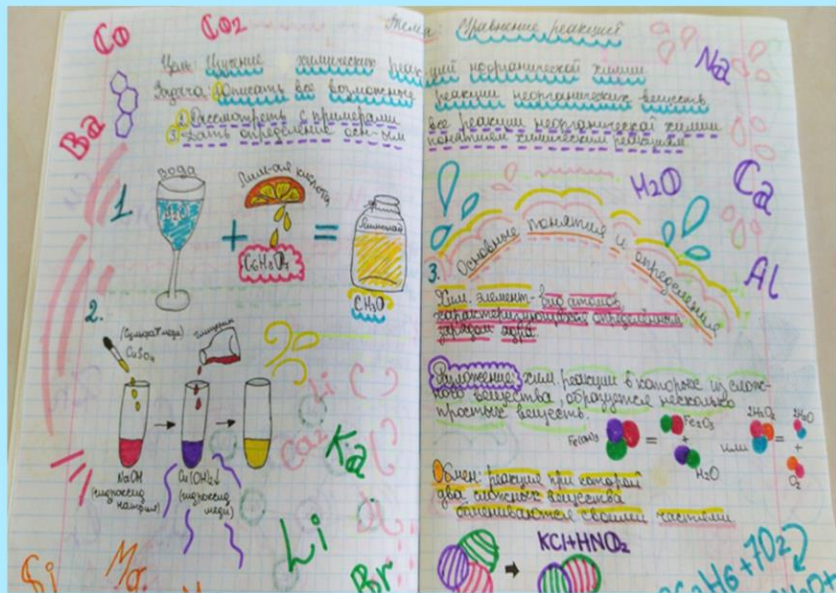 Co
CO2
Тема: Уравнение реакций
Цель: Изучение химических реакций неорганической химии
Задача: 1 Описать все возможные реакции неорганических веществ
2 Рассмотреть с примерами все реакции неорганической химии
3 Дать определение осн-ым понятием химическим реакциям
Ba
Na
1.
Вода
H2O
+
Лим-ая кислота
C6H8O7
=
Лимонад
CH3O
2.
(Сульфат меди)
CuSO4
глицерин
NaOH
(гидроксид натрия)
Cu(OH)2↓
(гидроксид меди)
Li
Ca2
Ka
Li
Br
Si
H2O
Ca
Al
3.
Основные понятия и определения
Хим. элемент - вид атомов,
характеризующийся определённым
зарядом ядра.
Разложение: хим. реакции в которых из слож-
ного вещества образуется несколько
простых веществ.
=
Fe2O3
+
H2O
или
2H2O2
=
2H2O
+
O2
Обмен: реакция при которой
два сложных вещества
обмениваются своими частями
KCl+HNO2
2C2H6+7O2